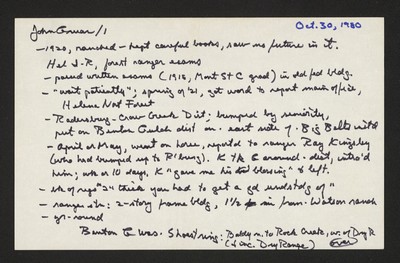 John Gruar/1
Oct. 30, 1980
— 1920, ranched — kept careful books, saw no future in it.
Hel J-R, forest ranger exams
— passed written exams (1918, Mont St C grad) in old fed bldg.
— "wait patiently"; spring of '21, got word to report main office,
Helena Nat Forest
— Radersburg - Crow Creek Dist; bumped by seniority,
put on Benton Gulch dist on east side of Big Belts
— April or May, went on horse, reptd to ranger Ray Kingsley
(who had bumped up to R'burg). K around dist, intro'd
him; wk or 10 days, K "gave me his blessing" & left.
— of regs 2" thick you had to get a gd undstdg of"
— ranger stn: 2-story frame bldg, 1½ mi from Watson ranch
— yr-round
Benton G was Shoestring: Baldy n. to Rock Creek, w. of Dry R
(& inc. Dry Range) over